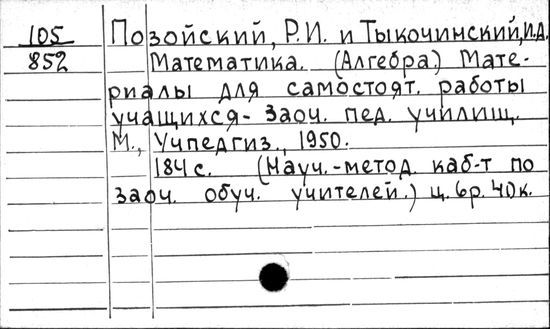 105 Позойский, Р.И. и Тыкочинский, И.Д.
852 Математика. (Алгебра.) Мате-
риалы для самостоят. работы
учащихся- заоч. пед. училищ.
М., Учпедгиз., 1950.
184 с. (Науч.-метод. каб-т по
заоч. обуч. учителей.) ц. 6р. 40к.